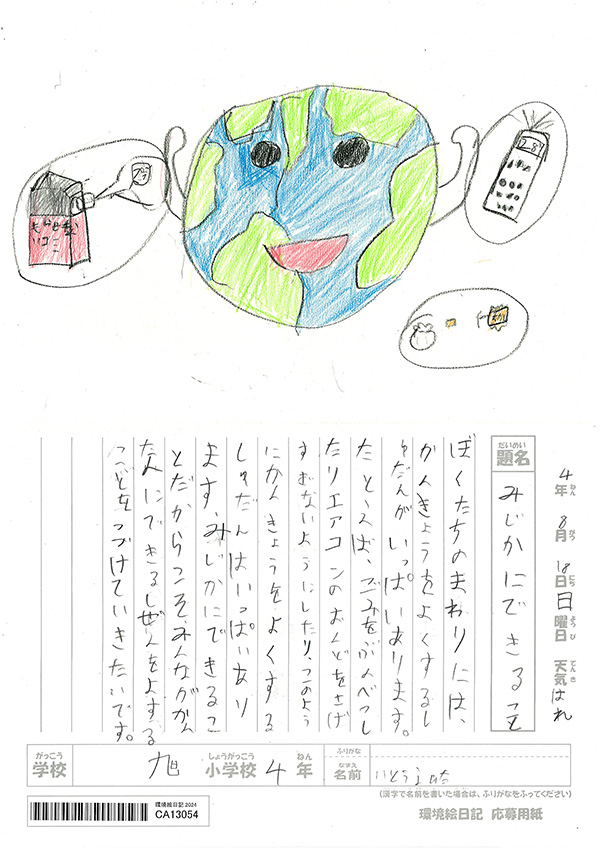 4年 8月 18日 日曜日 天気 はれ
ねん がつ にち ようび てんき
だいめい
題名 みじかにできること
ぼくたちのまわりには、
かんきょうをよくするし
ゅだんがいっぱいあります。
たとえば、ごみをぶんべつし
たりエアコンのおんどをさげ
すぎないようにしたり、このよう
にかんきょうをよくする
しゅだんはいっぱいあり
ます。みじかにできるこ
とだからこそ、みんながかん
たんにできるしぜんをよする
ことをつづけていきたいです。
がっこう しょうがっこう ねん ふりがな
学校 旭 小学校 4年 名前
なまえ
(漢字で名前を書いた場合は、ふりがなをふってください)
環境絵日記 2024
CA13054
環境絵日記 応募用紙